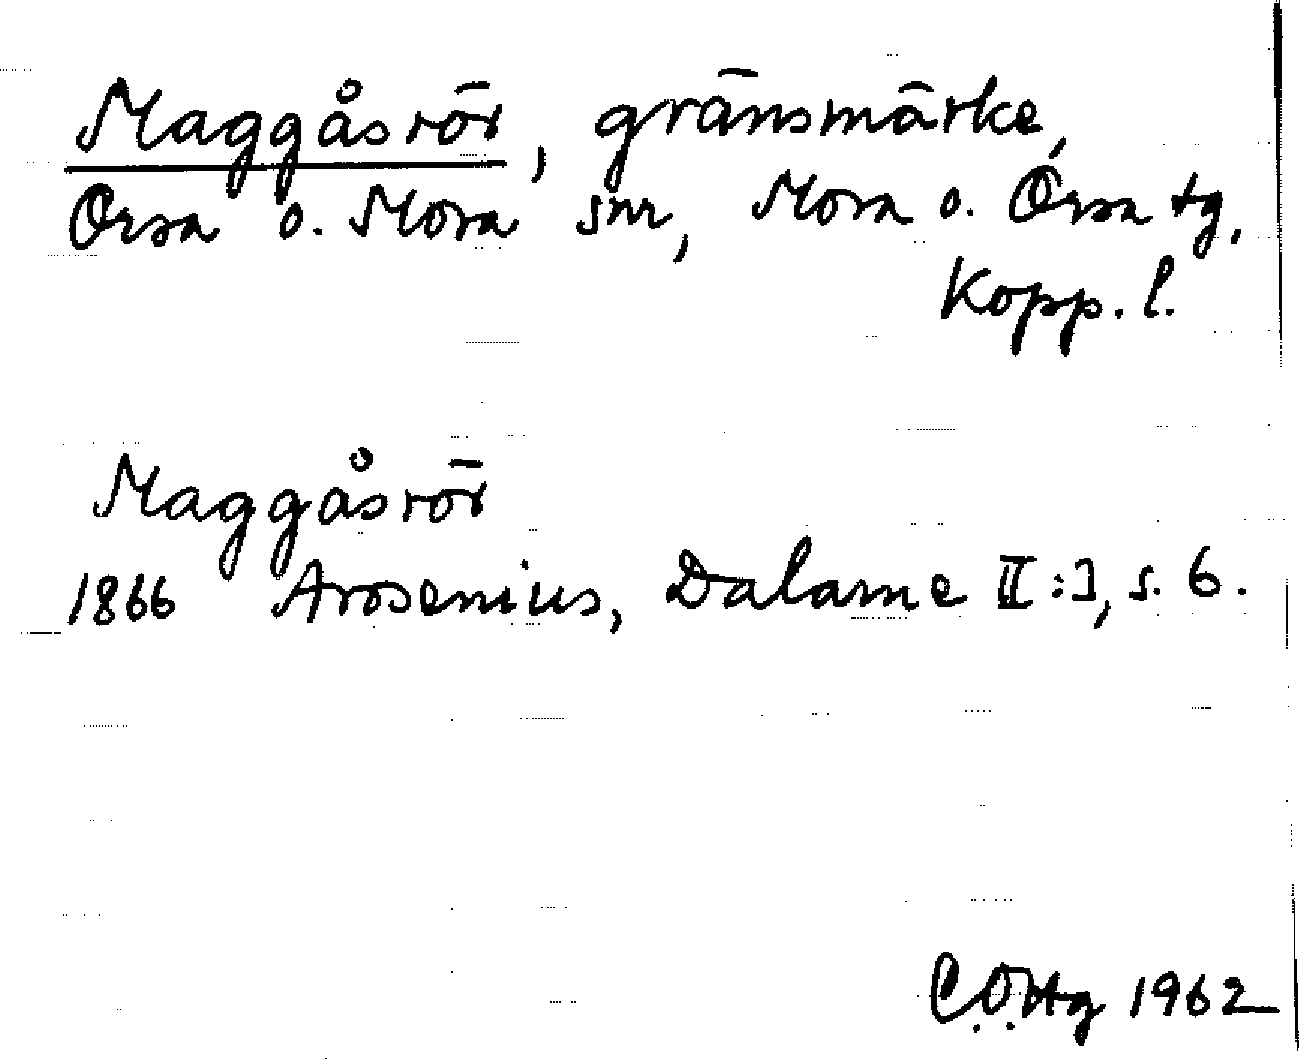 Maggåsrör, gränsmärke,
Orsa o. Mora snr, Mora o. Orsa tg,
Kopp. l.
Maggåsrör
1866 Arosenius, Dalarne II:I, s. 6.
C.O.Hg 1962